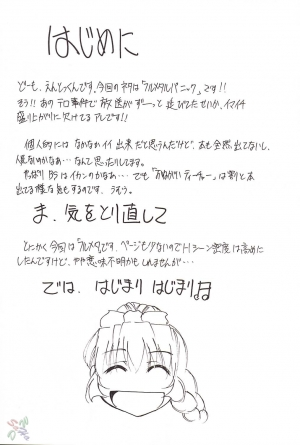 はじめに
どーも、えんとっくんです。今回のネタは「フルメタル パニック」です!!
そう!! あの テロ事件で 放送が ずーっと 延びたせいか、イマイチ
盛り上がりに 欠けてる アレです!!
個人的には なかなか イイ 出来 だと 思うんだけど、本も全然、出てないし、
人気ないのかなぁ…なんて 思ったりしてます。
やっぱり BSは イカンのかなぁ… でも「おねがいティーチャー」は 割と本
出てる様な気もするのです、うむう。
ま、気をとり直して
とにかく 今回は「フルメタ」です。ページも少ないのでHシーン密度は高めに
したんですけど、やや意味不明かもしれませんが…
では、はじまり はじまりぃ